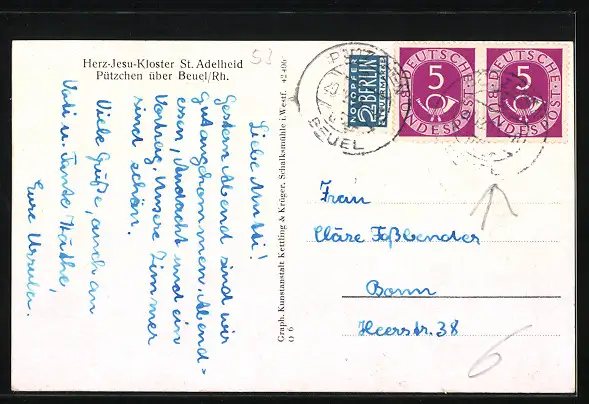 Herz-Jesu-Kloster St. Adelheid
Pützchen über Beuel/Rh.
53
42406
Liebe Mutti!
Gestern Abend sind wir
gut angekommen. Abend-
essen, Andacht und ein
Vortrag. Unsere Zimmer
sind schön.
Viele Grüße, auch an
Vati u. Tante Käthe,
Eure Ursula.
Graph. Kunstanstalt Kettling & Krüger, Schalksmühle i. Westf.
O 6
NOTOPFER
2 BERLIN
STEUERMARKE
DEUTSCHE
5
BUNDESPOST
DEUTSCHE
5
BUNDESPOST
BEUEL
Frau
Cläre Faßbender
Bonn
Heerstr. 38
6